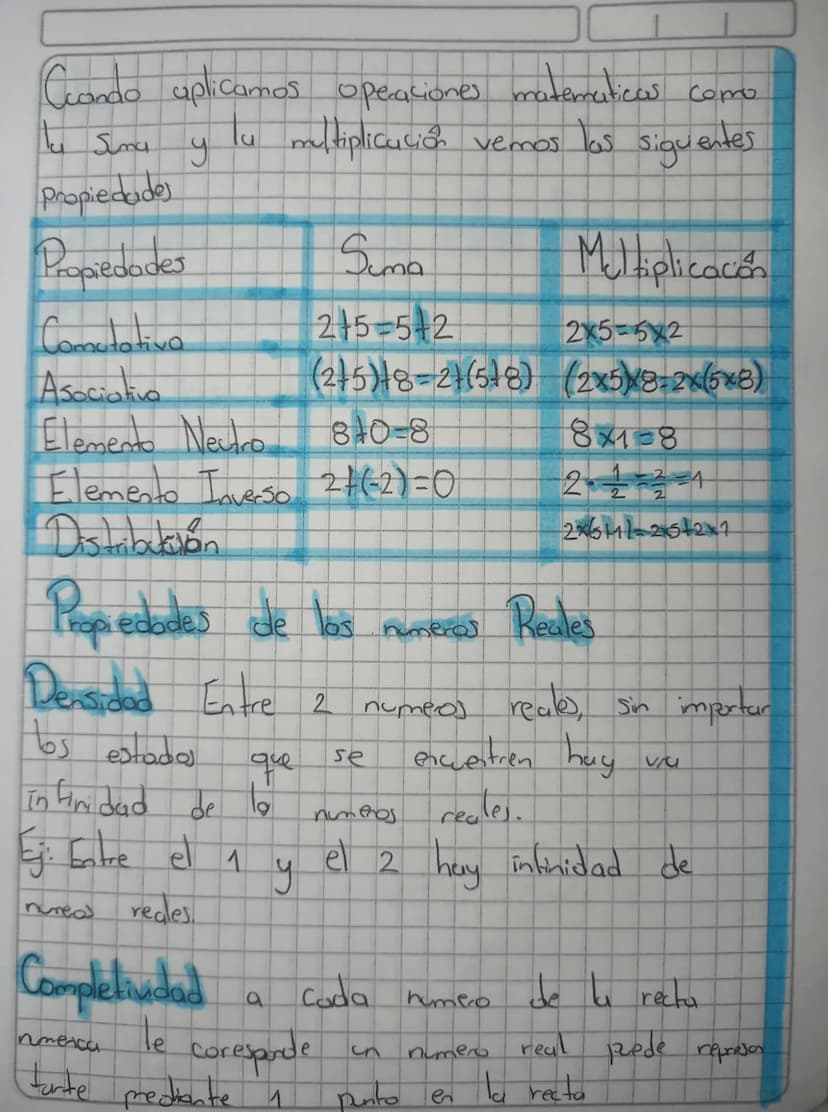 Cuando aplicamos operaciones matematicas como
la suma y la multiplicación vemos las siguentes
propiedades
Propiedades Suma Multiplicación
Comutativa 2+5=5+2 2x5=5x2
Asociativa (2+5)+8=2+(5+8) (2x5)x8=2x(5x8)
Elemento Neutro 8+0=8 8x1=8
Elemento Inverso 2+(-2)=0 2·1/2=2/2=1
Distribución 2x(5+1)=2x5+2x1
Propiedades de los numeros Reales
Densidad Entre 2 numeros reales, sin importar
los estados que se encuentren hay una
infinidad de lo numeros reales.
Ej: Entre el 1 y el 2 hay infinidad de
numeros reales.
Completividad a cada numero de la recta
numerica le coresponde un numero real puede represen
tarte mediante 1 punto en la recta